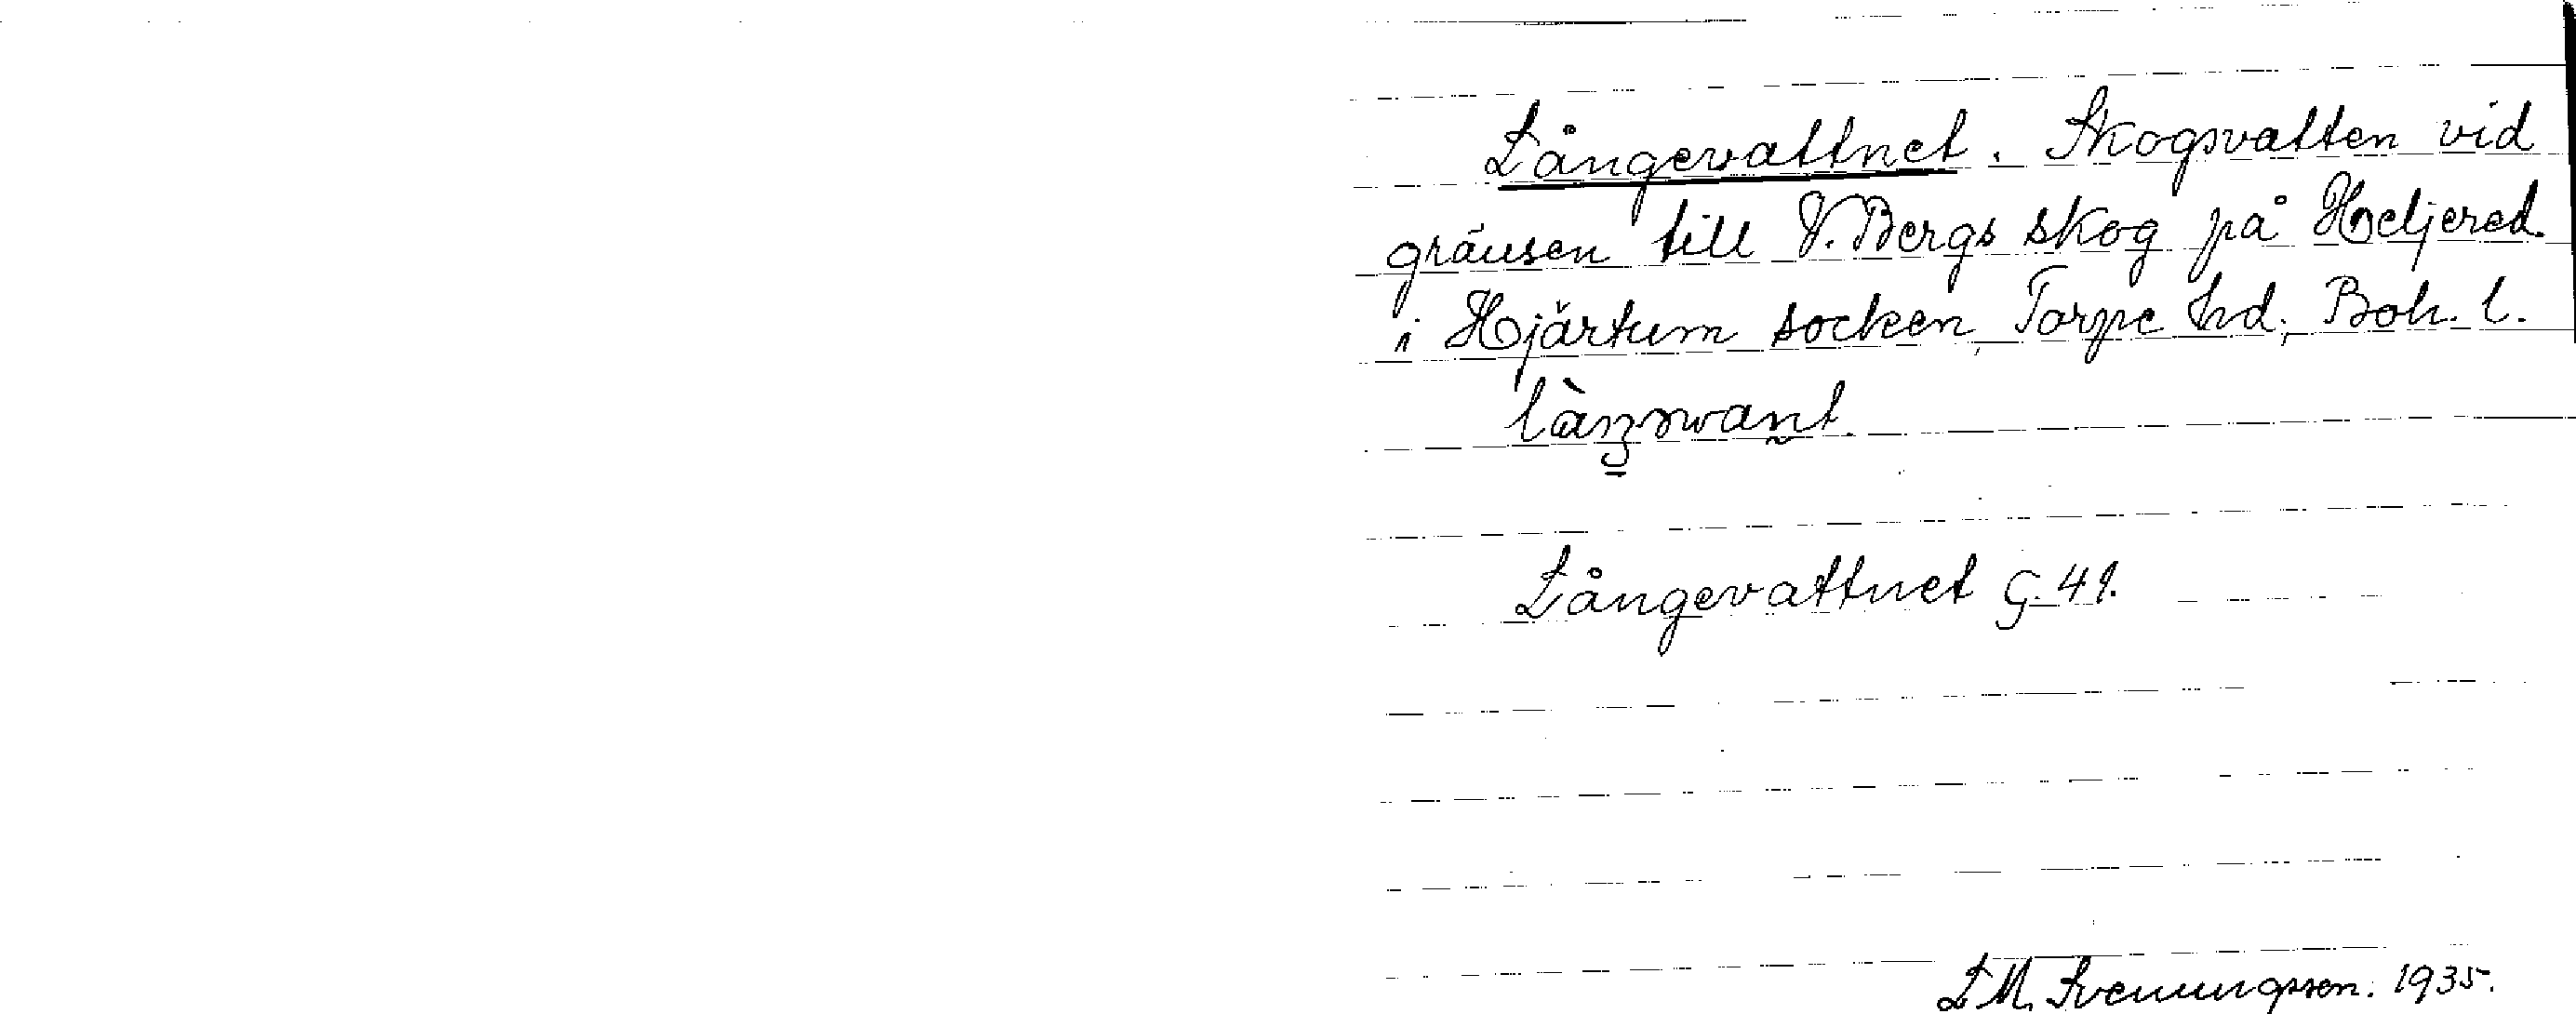 Långevattnet. Skogsvatten vid
gränsen till V. Bergs skog på Heljered
i Hjärtum socken, Torpe hd., Boh. l.
Långevattnet G. 41.
L M. Svenungsson. 1935.